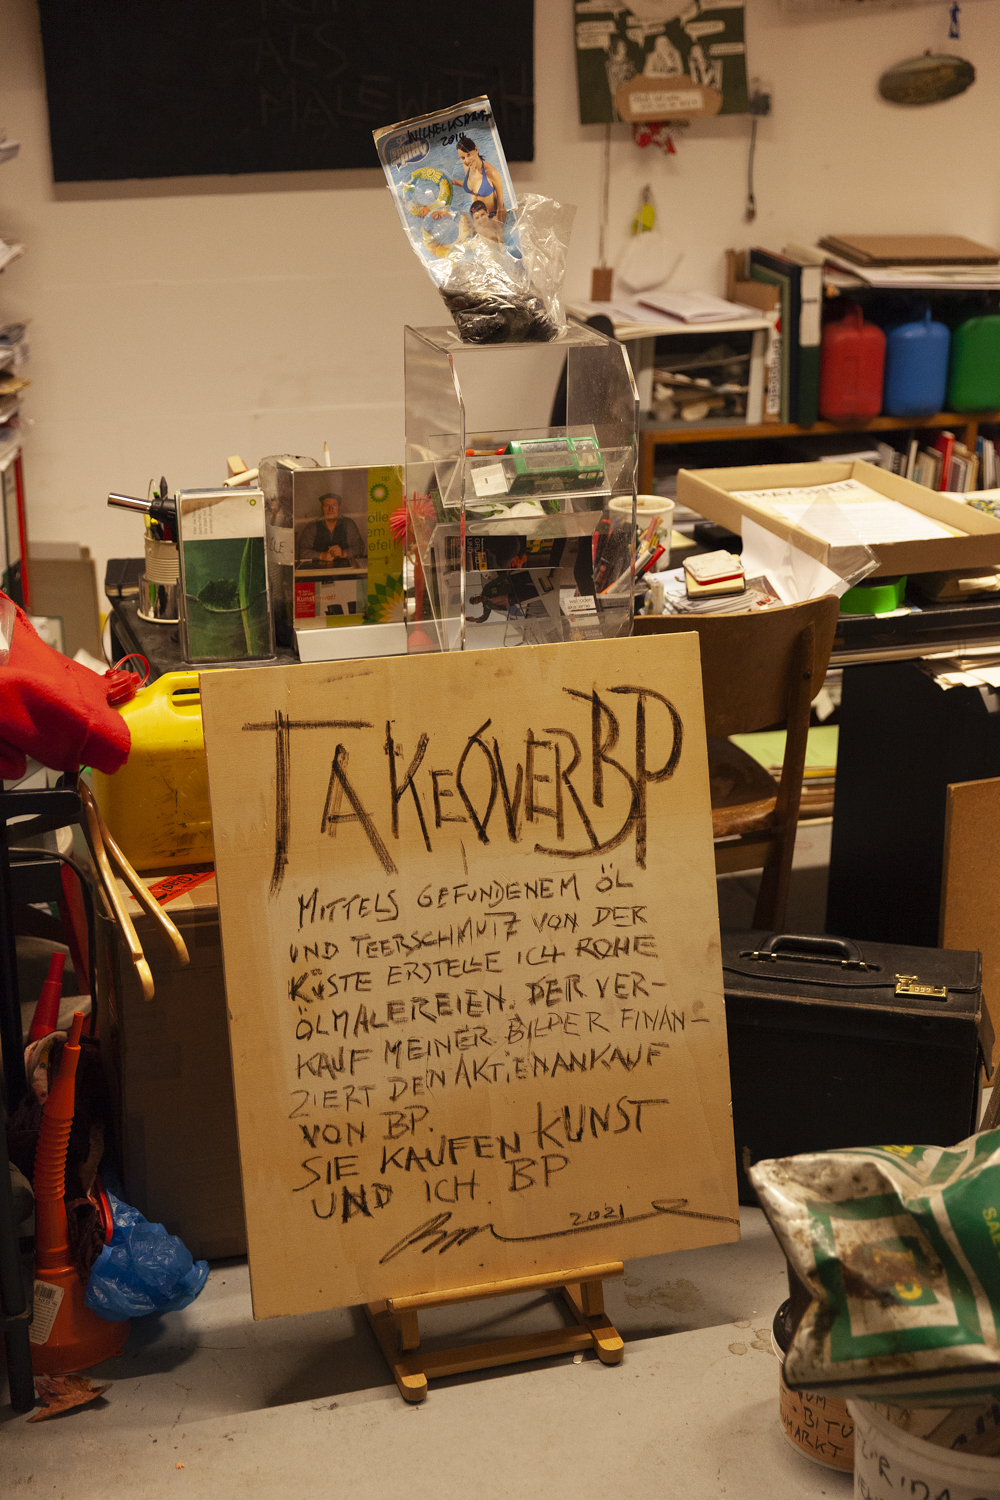 ALS
MALEWITCH
2014
bp
Kunst
TAKEOVER BP
MITTELS GEFUNDENEM ÖL
UND TEERSCHMUTZ VON DER
KÜSTE ERSTELLE ICH ROHE
ÖLMALEREIEN. DER VER-
KAUF MEINER BILDER FINAN-
ZIERT DEN AKTIENANKAUF
VON BP.
SIE KAUFEN KUNST
UND ICH BP
2021